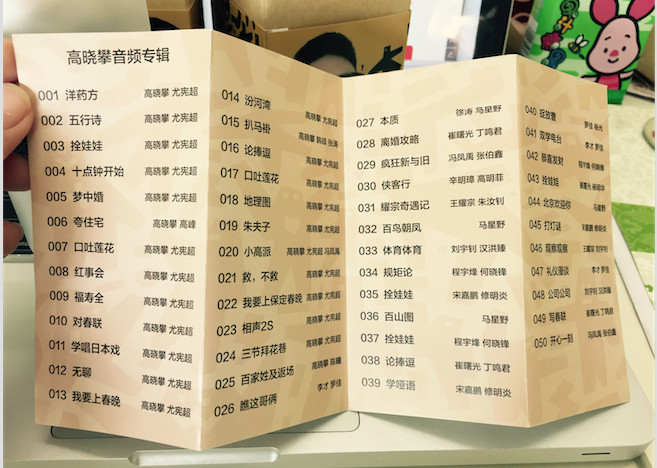 高晓攀音频专辑
001 洋药方 高晓攀 尤宪超
002 五行诗 高晓攀 尤宪超
003 拴娃娃 高晓攀 尤宪超
004 十点钟开始 高晓攀 尤宪超
005 梦中婚 高晓攀 尤宪超
006 夸住宅 高晓攀 高峰
007 口吐莲花 高晓攀 尤宪超
008 红事会 高晓攀 尤宪超
009 福寿全 高晓攀 尤宪超
010 对春联 高晓攀 尤宪超
011 学唱日本戏 高晓攀 尤宪超
012 无聊 高晓攀 尤宪超
013 我要上春晚 高晓攀 尤宪超
014 汾河湾 高晓攀 尤宪超
015 扒马褂 高晓攀 韩超 张涛
016 论捧逗 高晓攀 尤宪超
017 口吐莲花 高晓攀 尤宪超
018 地理图 高晓攀 尤宪超
019 朱夫子 高晓攀 尤宪超
020 小高派 高晓攀 尤宪超 冯凤禹
021 救，不救 高晓攀 尤宪超
022 我要上保定春晚 高晓攀 尤宪超
023 相声2S 高晓攀 尤宪超
024 三节拜花巷 高晓攀 尤宪超
025 百家姓及返场 高晓攀 陈曦
026 瞧这哥俩 李才 罗佳
027 本质 徐涛 马星野
028 离婚攻略 崔曙光 丁鸣君
029 疯狂新与旧 冯凤禹 张伯鑫
030 侠客行 辛明璋 高明菲
031 耀宗奇遇记 王耀宗 朱汝钊
032 百鸟朝凤 马星野
033 体育体育 刘宇钊 汉洪臻
034 规矩论 程宇烽 何晓锋
035 拴娃娃 宋嘉鹏 修明炎
036 百山图 马星野
037 拴娃娃 程宇烽 何晓锋
038 论捧逗 崔曙光 丁鸣君
039 学哑语 宋嘉鹏 修明炎
040 绽放曹 罗佳 杨光
041 双学电台 李才 罗佳
042 恭喜发财 程宇烽 何晓锋
043 拴娃娃 崔曙光
044 北京欢迎你 马星野
045 打灯谜 宋嘉鹏 修明炎
046 观察观察 王耀宗 刘宇钊
047 礼仪漫谈 李才 罗佳
048 公司公司 刘宇钊 汉洪臻
049 写春联 崔曙光 丁鸣君
050 开心一刻 冯凤禹 张伯鑫